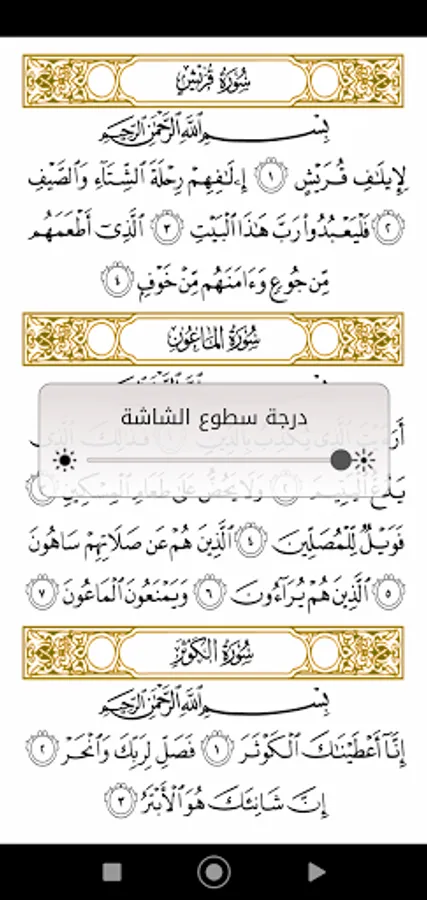 سُورَةُ قُرَيْشٍ
بِسْمِ ٱللَّهِ ٱلرَّحْمَٰنِ ٱلرَّحِيمِ
لِإِيلَٰفِ قُرَيْشٍ ١ إِۦلَٰفِهِمْ رِحْلَةَ ٱلشِّتَآءِ وَٱلصَّيْفِ
٢ فَلْيَعْبُدُوا۟ رَبَّ هَٰذَا ٱلْبَيْتِ ٣ ٱلَّذِىٓ أَطْعَمَهُم
مِّن جُوعٍ وَءَامَنَهُم مِّنْ خَوْفٍۭ ٤
سُورَةُ المَاعُونِ
درجة سطوع الشاشة
وَلَا يَحُضُّ عَلَىٰ طَعَامِ ٱلْمِسْكِينِ
فَوَيْلٌ لِّلْمُصَلِّينَ ٤ ٱلَّذِينَ هُمْ عَن صَلَاتِهِمْ سَاهُونَ
٥ ٱلَّذِينَ هُمْ يُرَآءُونَ ٦ وَيَمْنَعُونَ ٱلْمَاعُونَ ٧
سُورَةُ الكَوْثَرِ
بِسْمِ ٱللَّهِ ٱلرَّحْمَٰنِ ٱلرَّحِيمِ
إِنَّآ أَعْطَيْنَٰكَ ٱلْكَوْثَرَ ١ فَصَلِّ لِرَبِّكَ وَٱنْحَرْ ٢
إِنَّ شَانِئَكَ هُوَ ٱلْأَبْتَرُ ٣